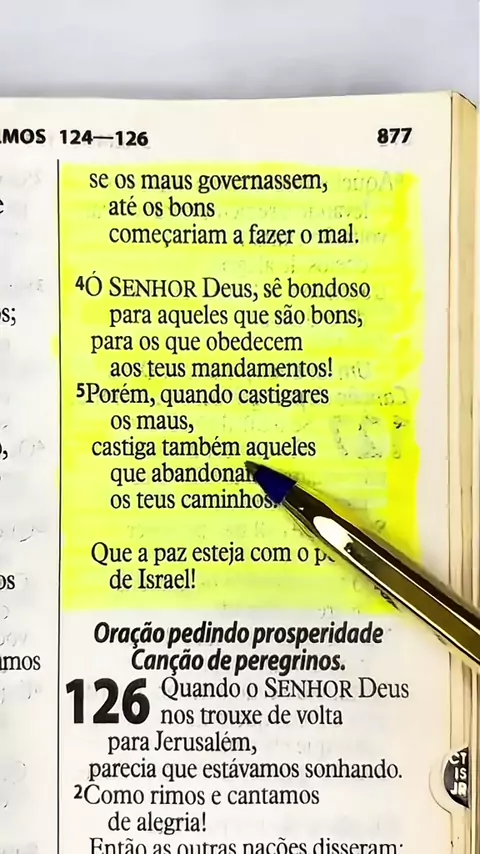 LMOS 124—126 877
se os maus governassem,
até os bons
começariam a fazer o mal.
4Ó SENHOR Deus, sê bondoso
para aqueles que são bons,
para os que obedecem
aos teus mandamentos!
5Porém, quando castigares
os maus,
castiga também aqueles
que abandonam
os teus caminhos.
Que a paz esteja com o
de Israel!
Oração pedindo prosperidade
Canção de peregrinos.
126 Quando o SENHOR Deus
nos trouxe de volta
para Jerusalém,
parecia que estávamos sonhando.
2Como rimos e cantamos
de alegria!
Então as outras nações disseram: